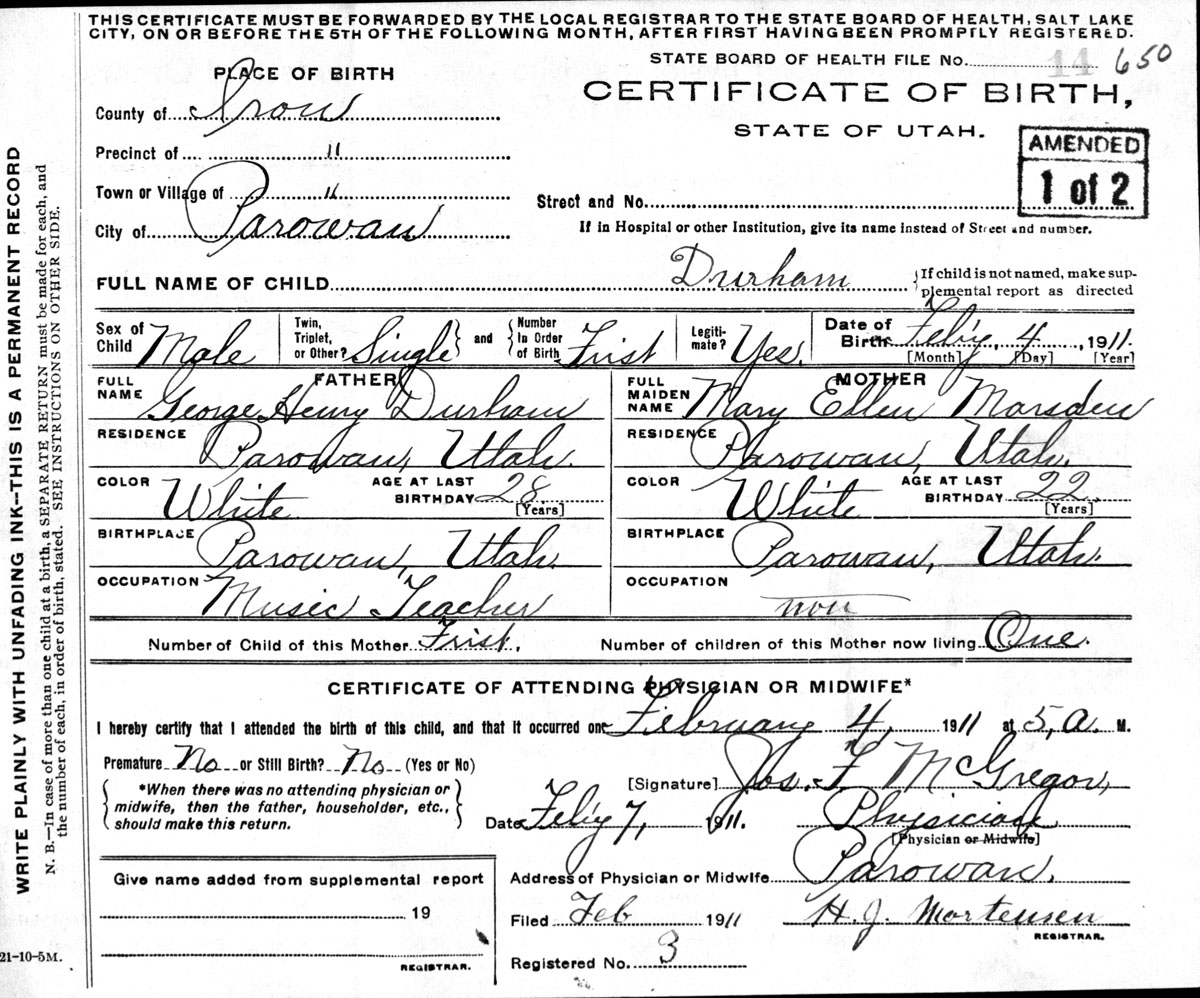 THIS CERTIFICATE MUST BE FORWARDED BY THE LOCAL REGISTRAR TO THE STATE BOARD OF HEALTH, SALT LAKE
CITY, ON OR BEFORE THE 5TH OF THE FOLLOWING MONTH, AFTER FIRST HAVING BEEN PROMPTLY REGISTERED.
STATE BOARD OF HEALTH FILE NO. 14 650
PLACE OF BIRTH
CERTIFICATE OF BIRTH,
STATE OF UTAH.
AMENDED
1 of 2
County of Iron
Precinct of "
Town or Village of "
City of Parowan
Street and No.
If in Hospital or other Institution, give its name instead of Street and number.
FULL NAME OF CHILD Durham
If child is not named, make sup-
plemental report as directed
Sex of Child Male
Twin, Triplet, or Other? Single and Number In Order of Birth Frist
Legiti-mate? Yes.
Date of Birth Feb'y, 4, 1911.
[Month] [Day] [Year]
FATHER
FULL NAME George Henry Durham
RESIDENCE Parowan, Utah.
COLOR White AGE AT LAST BIRTHDAY 28 [Years]
BIRTHPLACE Parowan, Utah.
OCCUPATION Music Teacher
MOTHER
FULL MAIDEN NAME Mary Ellen Marsden
RESIDENCE Parowan, Utah.
COLOR White AGE AT LAST BIRTHDAY 22. [Years]
BIRTHPLACE Parowan, Utah.
OCCUPATION non
Number of Child of this Mother Frist. Number of children of this Mother now living One.
CERTIFICATE OF ATTENDING PHYSICIAN OR MIDWIFE*
I hereby certify that I attended the birth of this child, and that it occurred on February 4, 1911 at 5, a. M.
Premature No or Still Birth? No (Yes or No)
*When there was no attending physician or
midwife, then the father, householder, etc.,
should make this return.
[Signature] Jos. F. McGregor,
Date Feb'y 7, 1911. Physician
[Physician or Midwife]
Address of Physician or Midwife Parowan.
Filed Feb 1911 H. J. Mortensen
REGISTRAR.
Registered No. 3
Give name added from supplemental report
19
REGISTRAR.
21-10-5M.
WRITE PLAINLY WITH UNFADING INK--THIS IS A PERMANENT RECORD
N. B.—In case of more than one child at a birth, a SEPARATE RETURN must be made for each, and
the number of each, in order of birth, stated. SEE INSTRUCTIONS ON OTHER SIDE.